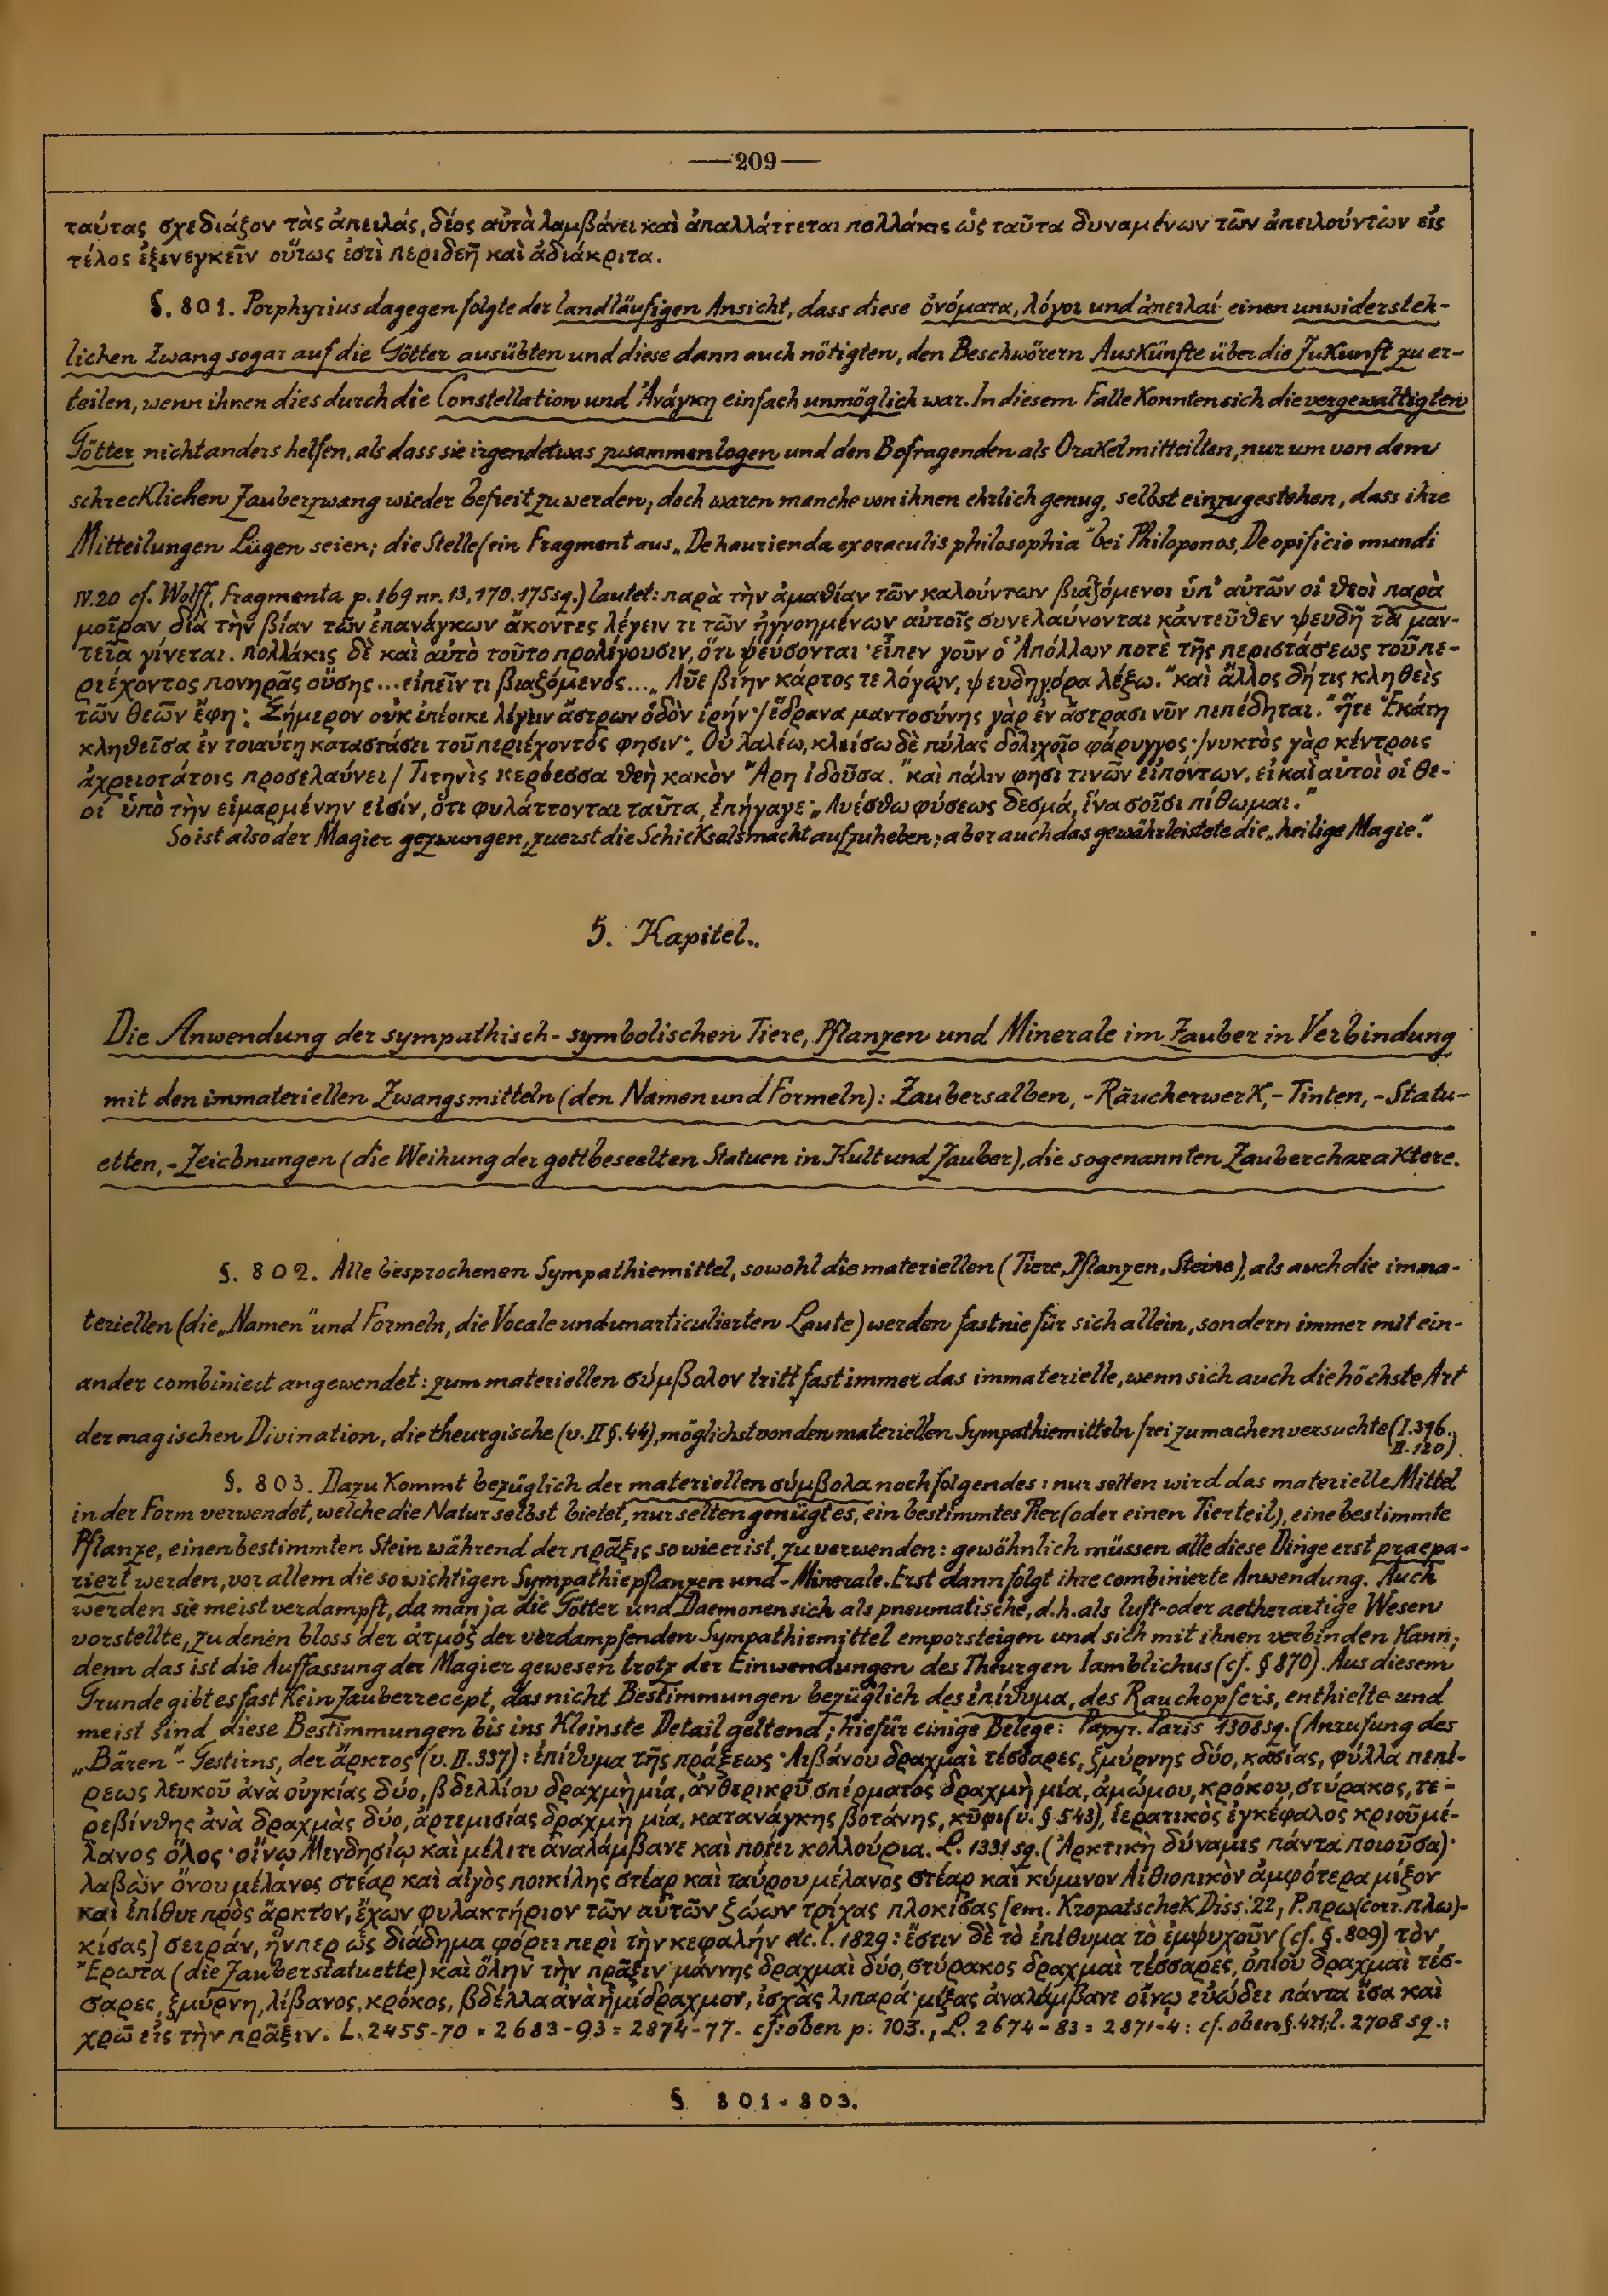 —209—
ταύτας σχεδιάζον τὰς ἀπειλάς, δέος αὐτὰ λαμβάνει καὶ ἀπαλλάττεται πολλάκις ὡς ταῦτα δυναμένων τῶν ἀπειλούντων εἰς
τέλος ἐξενεγκεῖν οὕτως ἐστὶ περιδεῆ καὶ ἀδιάκριτα.
§. 801. Porphyrius dagegen folgte der landläufigen Ansicht, dass diese ὀνόματα, λόγοι und ἀπειλαί einen unwidersteh-
lichen Zwang sogar auf die Götter ausübten und diese dann auch nötigten, den Beschwörern Auskünfte über die Zukunft zu er-
teilen, wenn ihnen dies durch die Constellation und Ἀνάγκη einfach unmöglich war. In diesem Falle konnten sich die vergewaltigten
Götter nicht anders helfen, als dass sie irgendetwas zusammenlogen und den Befragenden als Orakel mitteilten, nur um von dem
schrecklichen Zauberzwang wieder befreit zu werden; doch waren manche von ihnen ehrlich genug, selbst einzugestehen, dass ihre
Mitteilungen Lügen seien; die Stelle (ein Fragment aus „De haurienda ex oraculis philosophia" bei Philoponos, De opificio mundi
IV.20 cf. Wolff, Fragmenta p. 169 nr. 13, 170. 175 sq.) lautet: παρὰ τὴν ἀμαθίαν τῶν καλούντων βιαζόμενοι ὑπ' αὐτῶν οἱ θεοὶ παρὰ
μοῖραν διὰ τὴν βίαν τῶν ἐπανάγκων ἄκοντες λέγειν τι τῶν ἠγνοημένων αὐτοῖς συνελαύνονται κἀντεῦθεν ψευδῆ τὰ μαν-
τεῖα γίνεται. πολλάκις δὲ καὶ αὐτὸ τοῦτο προλέγουσιν, ὅτι ψεύσονται· εἶπεν γοῦν ὁ Ἀπόλλων ποτὲ τῆς περιστάσεως τοῦ πε-
ριέχοντος πονηρᾶς οὔσης... εἰπεῖν τι βιαζόμενος... „Λῦε βίην κάρτος τε λόγων, ψευδηγόρα λέξω." καὶ ἄλλος δή τις κληθεὶς
τῶν θεῶν ἔφη: „Σήμερον οὐκ ἐπέοικε λέγειν ἄστρων ὁδὸν ἱρήν·/ἕδρανα μαντοσύνης γὰρ ἐν ἄστρασι νῦν πεπέδηται." ἥ τε Ἑκάτη
κληθεῖσα ἐν τοιαύτῃ καταστάσει τοῦ περιέχοντός φησιν· „Οὐ λαλέω, κλείσω δὲ πύλας δολιχοῖο φάρυγγος·/νυκτὸς γὰρ κέντροις
ἀχρειοτάτοις προσελαύνει / Τιτηνὶς κερόεσσα θεὴ κακὸν Ἄρη ἰδοῦσα." καὶ πάλιν φησὶ τινῶν εἰπόντων, εἰ καὶ αὐτοὶ οἱ θε-
οί ὑπὸ τὴν εἱμαρμένην εἰσίν, ὅτι φυλάττονται ταῦτα, ἐπήγαγε: „Λυέσθω φύσεως δεσμά, ἵνα σοῖσι πίθωμαι."
So ist also der Magier gezwungen, zuerst die Schicksalsmacht aufzuheben; aber auch das gewährleistete die „heilige Magie."
5. Kapitel.
Die Anwendung der sympathisch-symbolischen Tiere, Pflanzen und Minerale im Zauber in Verbindung
mit den immateriellen Zwangsmitteln (den Namen und Formeln): Zaubersalben, -Räucherwerk, -Tinten, -Statu-
etten, -Zeichnungen (die Weihung der gottbeseelten Statuen in Kult und Zauber), die sogenannten Zaubercharaktere.
§. 802. Alle besprochenen Sympathiemittel, sowohl die materiellen (Tiere, Pflanzen, Steine), als auch die imma-
teriellen (die „Namen" und Formeln, die Vocale und unarticulierten Laute) werden fast nie für sich allein, sondern immer mit ein-
ander combiniert angewendet: zum materiellen σύμβολον tritt fast immer das immaterielle, wenn sich auch die höchste Art
der magischen Divination, die theurgische (v. II §. 44), möglichst von den materiellen Sympathiemitteln frei zu machen versuchte (I.396.
II. 120)
§. 803. Dazu kommt bezüglich der materiellen σύμβολα noch folgendes: nur selten wird das materielle Mittel
in der Form verwendet, welche die Natur selbst bietet, nur selten genügt es, ein bestimmtes Tier (oder einen Tierteil), eine bestimmte
Pflanze, einen bestimmten Stein während der πρᾶξις so wie er ist, zu verwenden: gewöhnlich müssen alle diese Dinge erst praepa-
riert werden, vor allem die so wichtigen Sympathiepflanzen und -Minerale. Erst dann folgt ihre combinierte Anwendung. Auch
werden sie meist verdampft, da man ja die Götter und Daemonen sich als pneumatische, d.h. als luft- oder aetherartige Wesen
vorstellte, zu denen bloss der ἀτμός der verdampfenden Sympathiemittel emporsteigen und sich mit ihnen verbinden kann;
denn das ist die Auffassung der Magier gewesen trotz der Einwendungen des Theurgen Iamblichus (cf. § 870). Aus diesem
Grunde gibt es fast kein Zauberrecept, das nicht Bestimmungen bezüglich des ἐπίθυμα, des Rauchopfers, enthielte und
meist sind diese Bestimmungen bis ins kleinste Detail geltend; hiefür einige Belege: Papyr. Paris 1308 sq. (Anrufung des
„Bären"-Gestirns, der ἄρκτος (v. II. 337): ἐπίθυμα τῆς πράξεως· λιβάνου δραχμαὶ τέσσαρες, ζμύρνης δύο, κασίας, φύλλα πεπέ-
ρεως λευκοῦ ἀνὰ οὐγκίας δύο, βδελλίου δραχμὴ μία, ἀνθερικοῦ σπέρματος δραχμὴ μία, ἀμώμου, κρόκου, στύρακος, τε-
ρεβίνθης ἀνὰ δραχμὰς δύο, ἀρτεμισίας δραχμὴ μία, κατανάγκης βοτάνης, κῦφι (v. §. 543), ἱερατικὸς ἐγκέφαλος κριοῦ μέ-
λανος ὅλος· οἴνῳ Μενδησίῳ καὶ μέλιτι ἀναλάμβανε καὶ ποίει κολλούρια. L. 1331 sq. (Ἀρκτικὴ δύναμις πάντα ποιοῦσα)·
λαβὼν ὄνου μέλανος στέαρ καὶ αἰγὸς ποικίλης στέαρ καὶ ταύρου μέλανος στέαρ καὶ κύμινον Αἰθιοπικὸν ἀμφότερα μίξον
καὶ ἐπίθυε πρὸς ἄρκτον, ἔχων φυλακτήριον τῶν αὐτῶν ζώων τρίχας πλοκίσας [em. Kropatschek Diss. 22, P. πρω(corr. πλω)-
κίσας] σειράν, ἥνπερ ὡς διάδημα φόρει περὶ τὴν κεφαλήν etc. l. 1829: ἔστιν δὲ τὸ ἐπίθυμα τὸ ἐμψυχοῦν (cf. §. 809) τὸν
Ἔρωτα (die Zauberstatuette) καὶ ὅλην τὴν πρᾶξιν· μάννης δραχμαὶ δύο, στύρακος δραχμαὶ τέσσαρες, ὀπίου δραχμαὶ τέσ-
σαρες, ζμύρνη, λίβανος, κρόκος, βδέλλα ἀνὰ ἡμίδραχμον, ἰσχὰς λιπαρά· μίξας ἀναλάμβανε οἴνῳ εὐώδει πάντα ἴσα καὶ
χρῶ εἰς τὴν πρᾶξιν. L. 2455-70 = 2683-93 = 2874-77. cf. oben p. 103., L. 2674-83 = 2871-4: cf. oben §. 421; l. 2708 sq.:
§ 801-803.